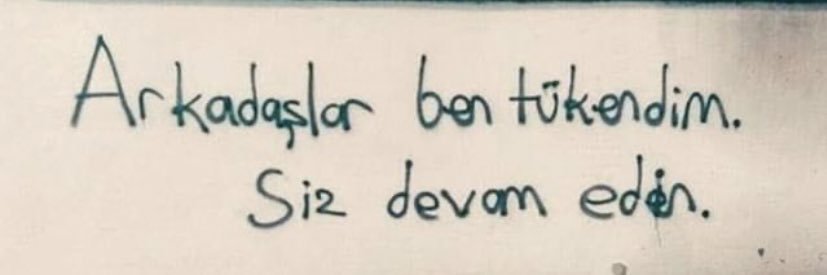 Arkadaşlar ben tükendim.
Siz devam edin.